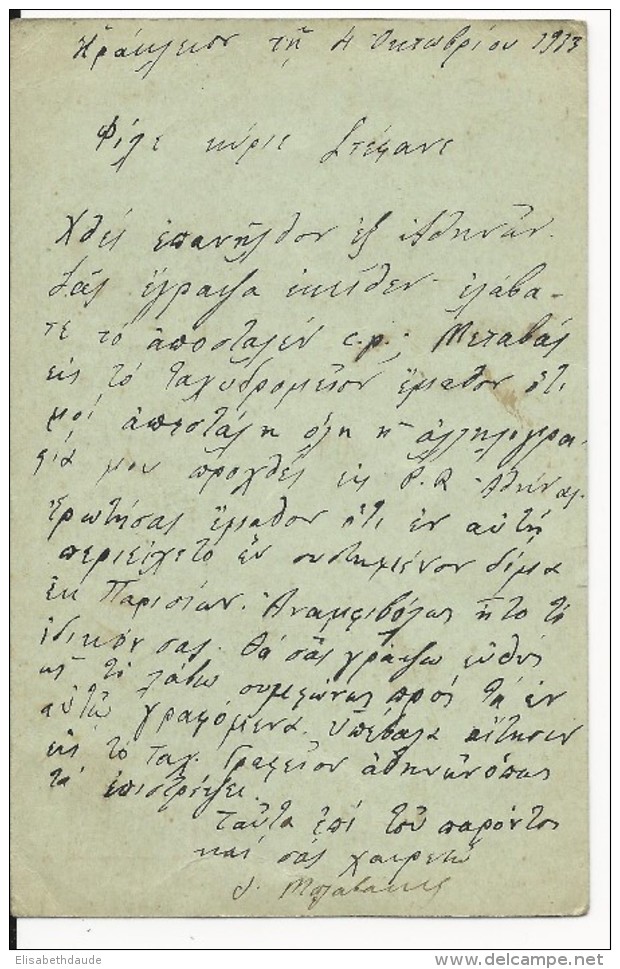 Ἡράκλειον τῇ 4 Ὀκτωβρίου 1913
Φίλε κύριε Στέφανε
Χθὲς ἐπανῆλθον ἐξ Ἀθηνῶν.
Σᾶς ἔγραψα ἐκεῖθεν· ἐλάβα-
τε τό ἀποσταλέν c.p.; Μεταβάς
εἰς τό ταχυδρομεῖον ἔμαθον ὅτι
μοί ἀπεστάλη ὅλη ἡ ἀλληλογρα-
φία μου προχθές εἰς P.R. Ἀθήνας.
Ἐρωτήσας ἔμαθον ὅτι ἐν αὐτῇ
περιείχετο ἕν συστημένον δέμα
ἐκ Παρισίων. Ἀναμφιβόλως ἦτο τό
ἰδικόν σας. Θά σᾶς γράψω εὐθύς
ὡς τό λάβω συμφώνως πρός τά ἐν
αὐτῷ γραφόμενα. Ὑπέβαλα αἴτησιν
εἰς τό ταχ. Γραφεῖον Ἀθηνῶν ὅπως
τά ἐπιστρέψει.
Ταῦτα ἐπί τοῦ παρόντος
καί σᾶς χαιρετῶ
Elisabethdaude
delcampe.net